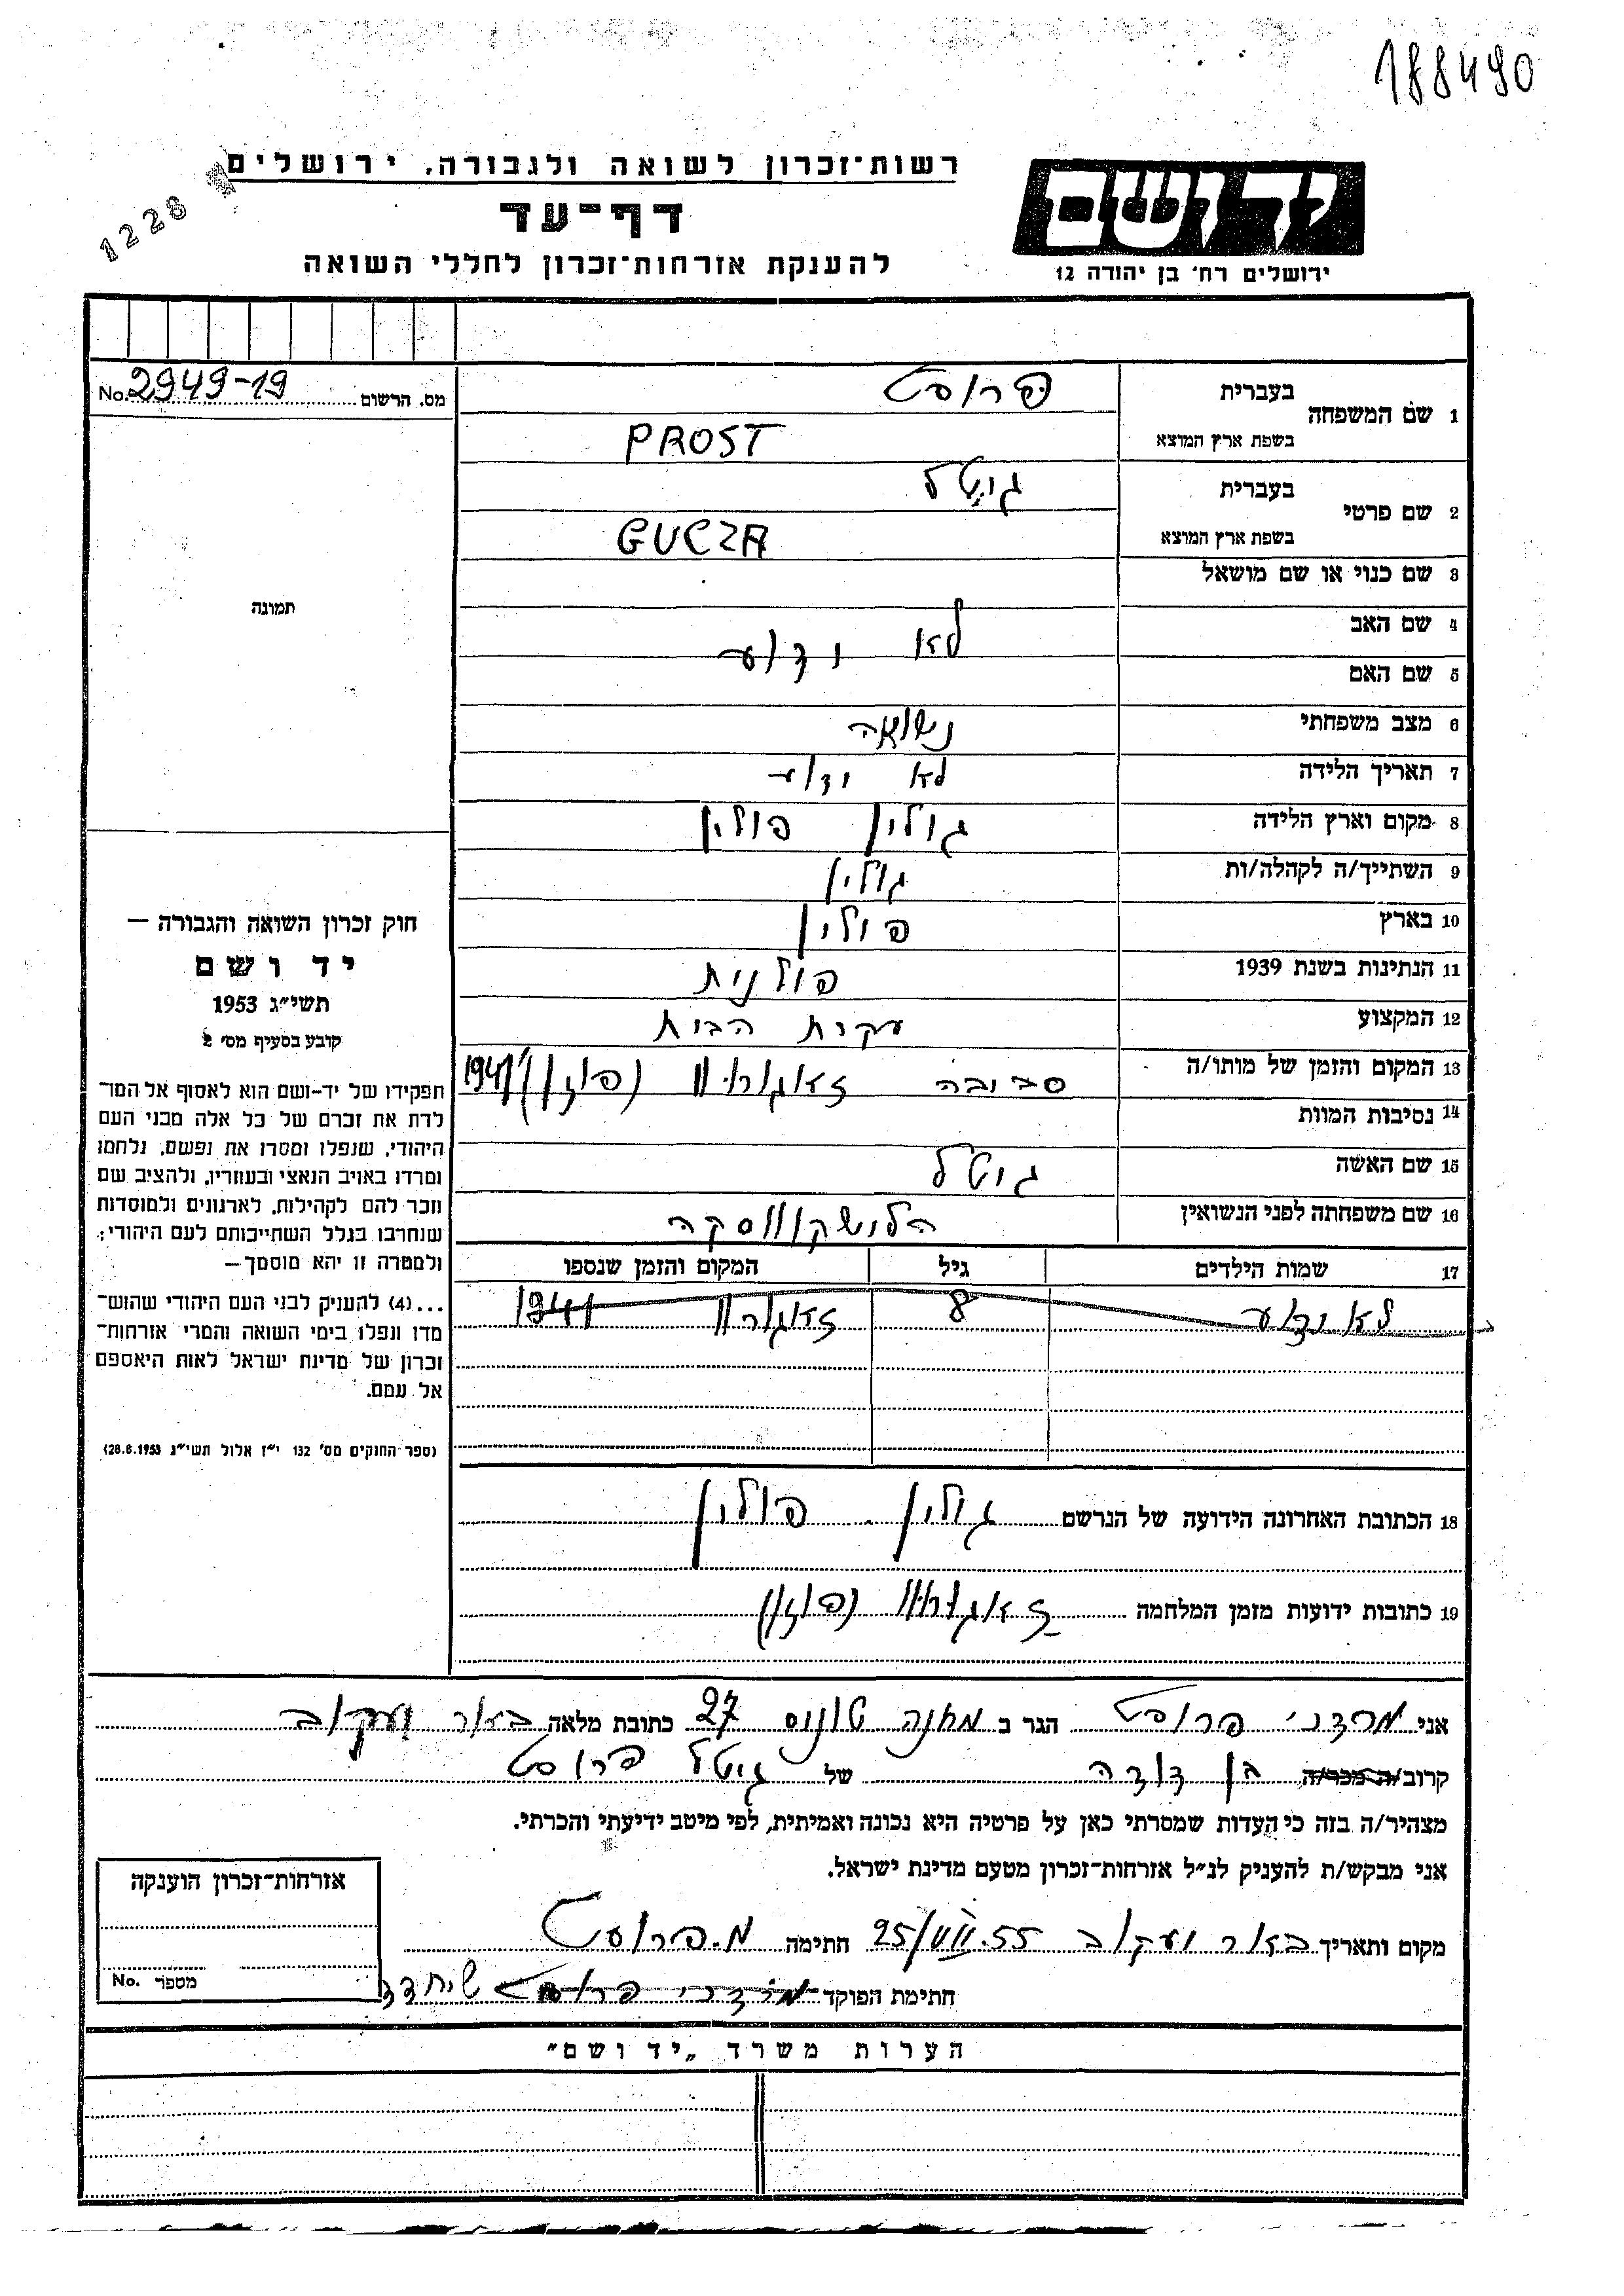 188490
רשות־זכרון לשואה ולגבורה, ירושלים
1228
דף־עד
ידושם
להענקת אזרחות־זכרון לחללי השואה
ירושלים רח' בן יהודה 12
מס. הרשום 2949-19 No.
1 שם המשפחה
בעברית פרוסט
בשפת ארץ המוצא PROST
2 שם פרטי
בעברית גיטל
בשפת ארץ המוצא GUCZA
3 שם כנוי או שם מושאל
תמונה
4 שם האב
לא ידוע
5 שם האם
6 מצב משפחתי נשואה
7 תאריך הלידה לא ידוע
8 מקום וארץ הלידה גולין פולין
9 השתייך/ה לקהלה/ות גולין
10 בארץ פולין
11 הנתינות בשנת 1939 פולנית
12 המקצוע עקרת הבית
13 המקום והזמן של מותו/ה סביבה זאגורוו (פוזן) 1941
14 נסיבות המוות
15 שם האשה גיטל
16 שם משפחתה לפני הנשואין
17 שמות הילדים גיל המקום והזמן שנספו
לא ידוע 8 זאגורוו 1941
חוק זכרון השואה והגבורה —
יד ושם
תשי״ג 1953
קובע בסעיף מס' 2
תפקידו של יד-ושם הוא לאסוף אל המו־
לדת את זכרם של כל אלה מבני העם
היהודי, שנפלו ומסרו את נפשם, נלחמו
ומרדו באויב הנאצי ובעוזריו, ולהציב שם
וזכר להם לקהילות, לארגונים ולמוסדות
שנחרבו בגלל השתייכותם לעם היהודי;
ולמטרה זו יהא מוסמך—
...(4) להעניק לבני העם היהודי שהוש־
מדו ונפלו בימי השואה והמרי אזרחות־
זכרון של מדינת ישראל לאות היאספם
אל עמם.
(ספר החוקים מס' 132 י״ז אלול תשי״ג 28.8.1953)
18 הכתובת האחרונה הידועה של הנרשם גולין פולין
19 כתובות ידועות מזמן המלחמה זאגורוו (פוזן)
אני מרדכי פרוסט הגר ב מחנה טונוס 27 כתובת מלאה באר יעקוב
קרוב/ה מכר/ה בן דודה של גיטל פרוסט
מצהיר/ה בזה כי העדות שמסרתי כאן על פרטיה היא נכונה ואמיתית, לפי מיטב ידיעתי והכרתי.
אני מבקש/ת להעניק לנ״ל אזרחות־זכרון מטעם מדינת ישראל.
מקום ותאריך באר יעקוב 25/VIII.55 חתימה מ. פרוסט
חתימת הפוקד מרדכי פרוסט
אזרחות־זכרון הוענקה
מספר No.
הערות משרד „יד ושם״